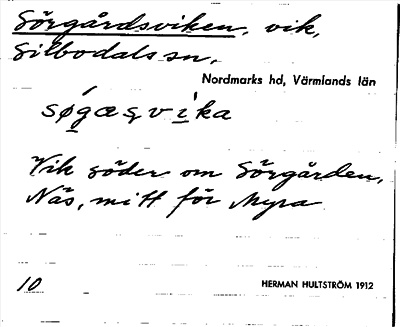 Sörgårdsviken, vik,
Silbodals sn.
Nordmarks hd, Värmlands län
søgæsvika
Vik söder om Sörgården,
Näs, mitt för Myra
10
HERMAN HULTSTRÖM 1912